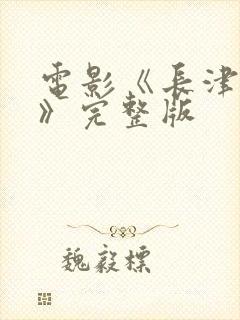 電影《長津
》完整版
魏毅標